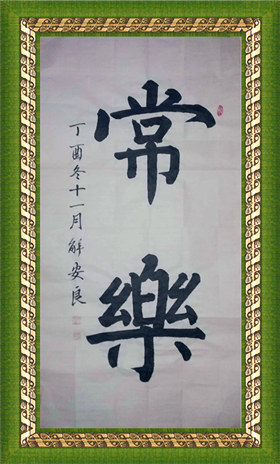 常樂
丁酉冬十一月解安良